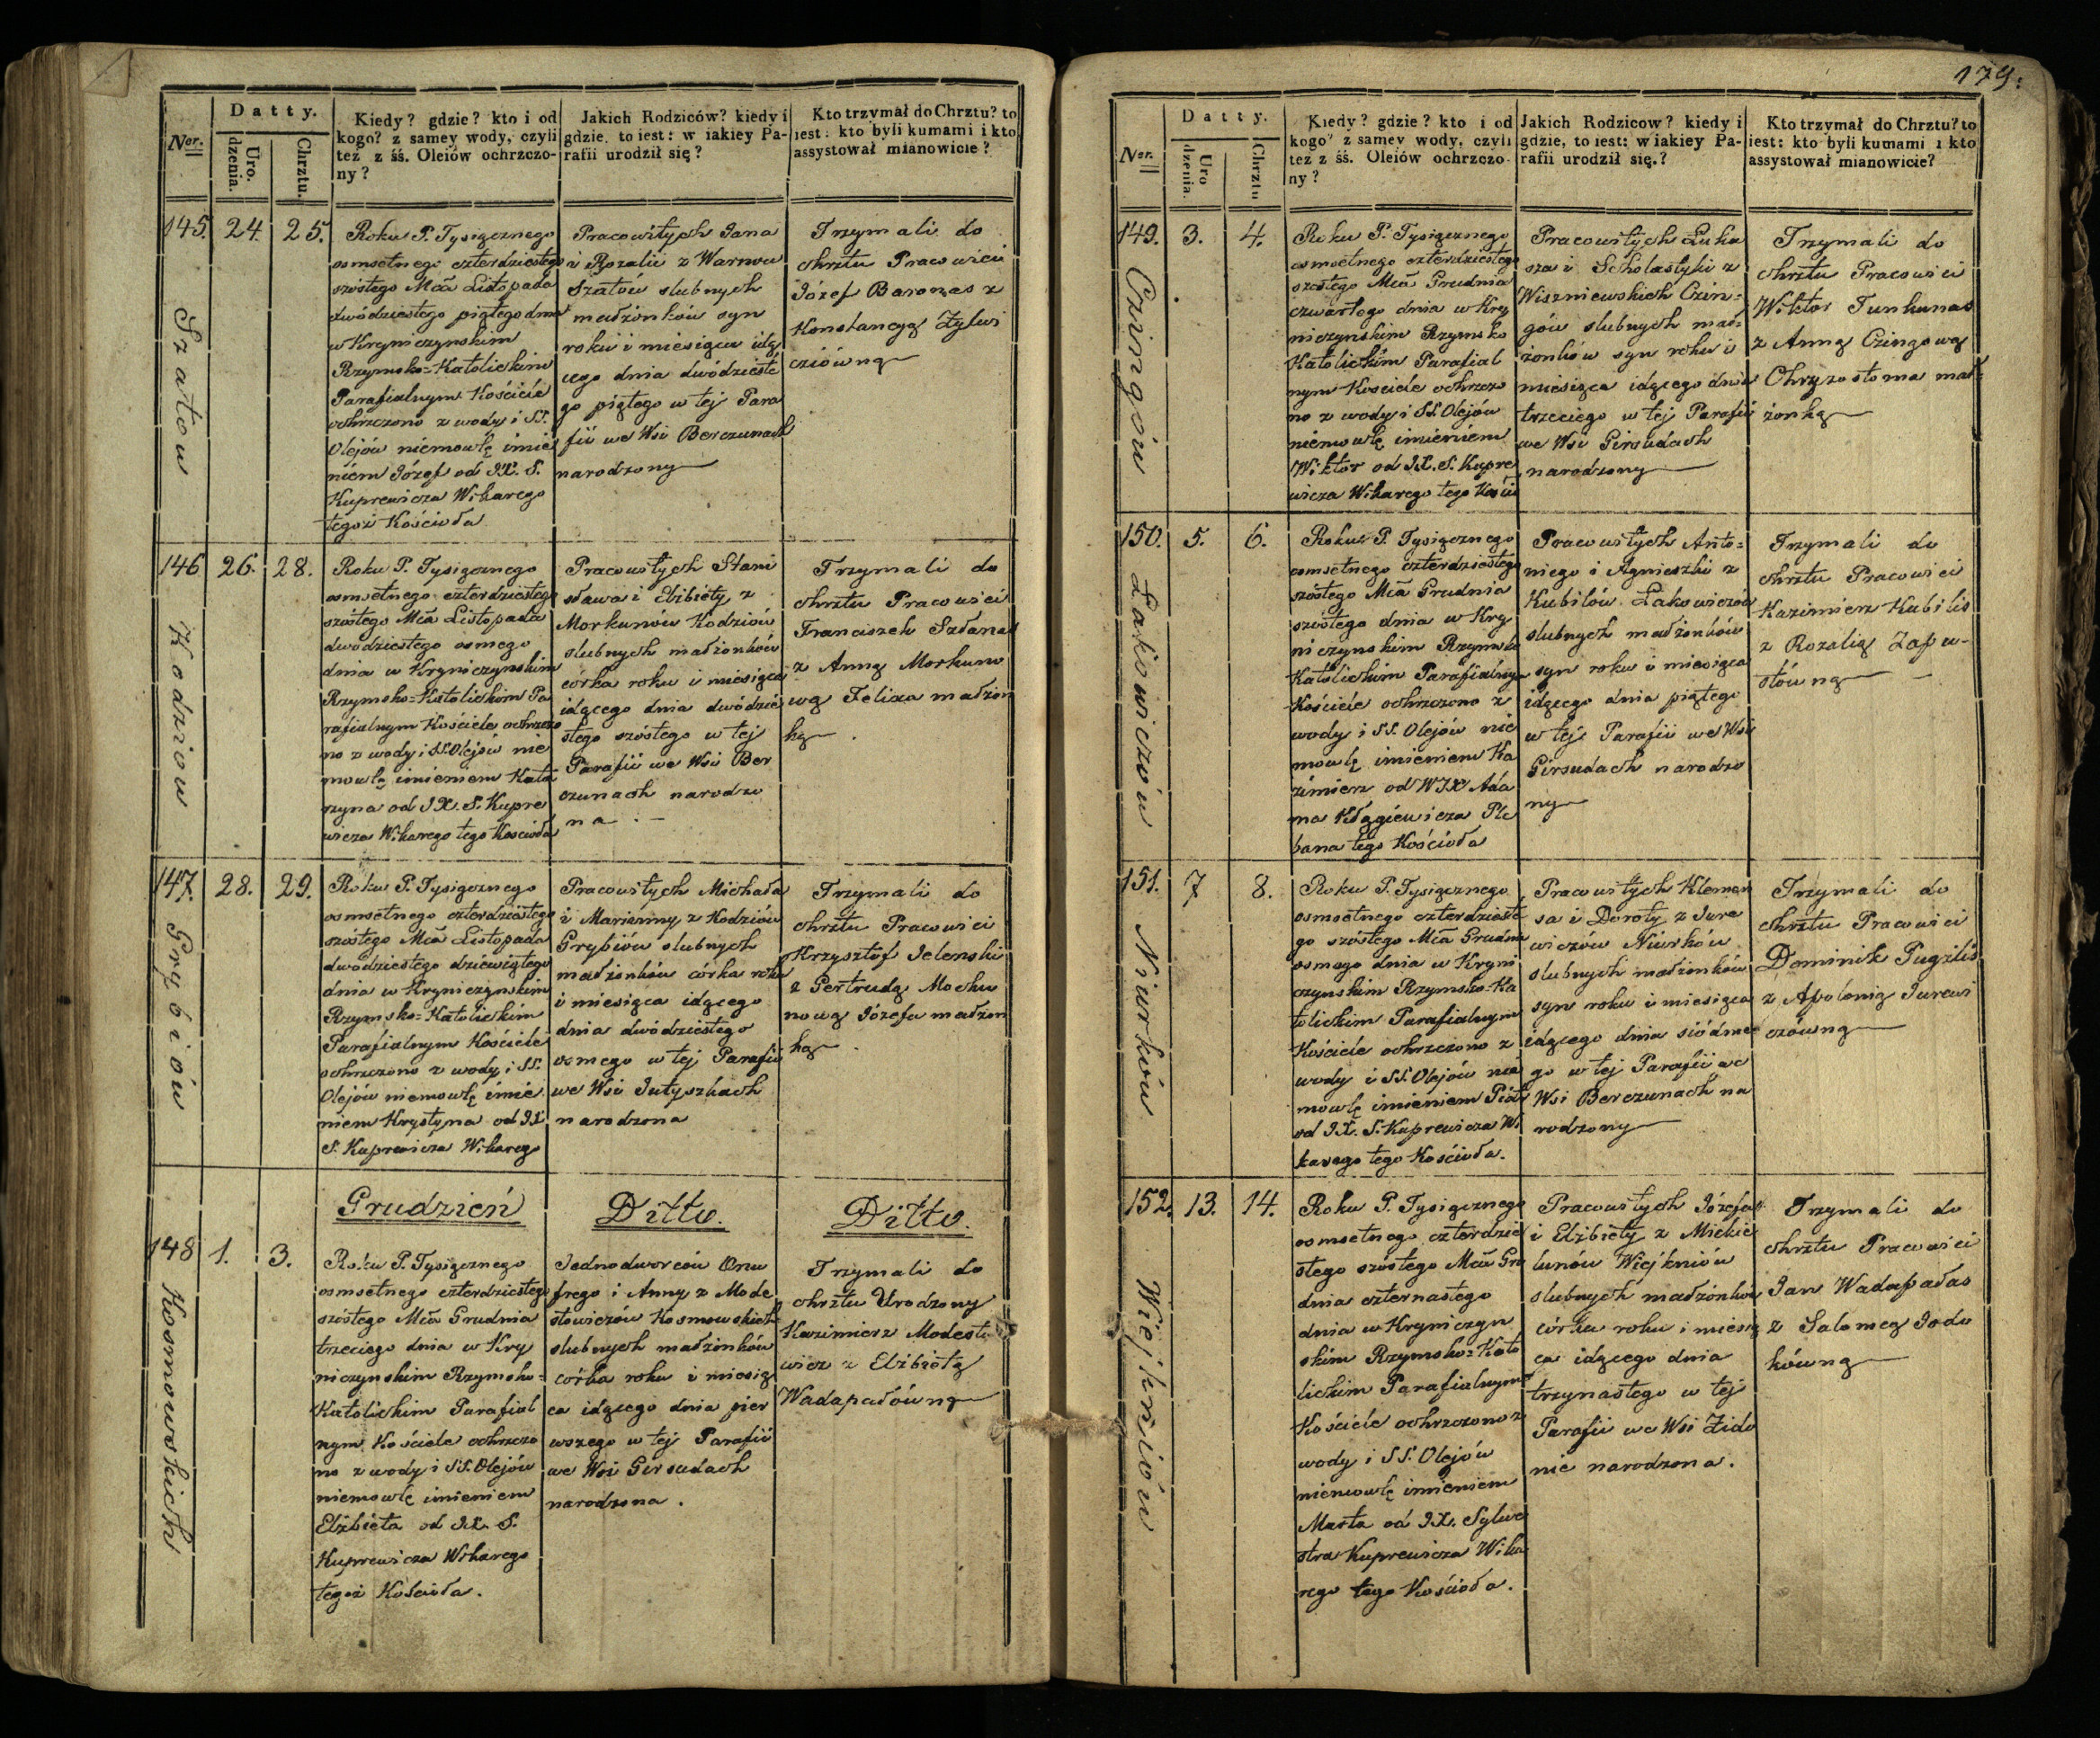 Nor.
Datty.
Uro.
dzenia.
Chrztu.
Kiedy? gdzie? kto i od
kogo? z samey wody, czyli
też z śś. Oleiów ochrzczo-
ny?
Jakich Rodziców? kiedy i
gdzie, to iest: w iakiey Pa-
rafii urodził się?
Kto trzymał do Chrztu? to
iest: kto byli kumami i kto
assystował mianowicie?
145.
Szatow
24.
25.
Roku P. Tysiącznego
osmsetnego czterdziestego
szóstego Mca Listopada
dwódziestego piątego dnia
w Kryniczynskim
Rzymsko=Katolickim
Parafialnym Kościele
ochrzczono z wody i SS.
Olejów niemowlę imie
niem Józef od JX. S.
Kuprewicza Wikarego
tegoż Kościoła
Pracowitych Jana
i Rozalii z Warnow
Szatów slubnych
małżonków syn
roku i miesiąca idą
cego dnia dwódzieste
go piątego w tej Para
fii we Wsi Berczunach
narodzony
Trzymali do
chrztu Pracowici
Józef Baronas z
Konstancyą Zylwi
cziówną
146
Kodziow
26.
28.
Roku P. Tysiącznego
osmsetnego czterdziestego
szóstego Mca Listopada
dwódziestego osmego
dnia w Kryniczynskim
Rzymsko=Katolickim Pa
rafialnym Kościele ochrzczo
no z wody i SS. Olejów nie
mowlę imieniem Kata
rzyna od JX. S. Kupre
wicza Wikarego tego Kościoła
Pracowitych Stani
sława i Elżbiety z
Morkunów Kodziów
slubnych małżonków
córka roku i miesiąca
idącego dnia dwódzie
stego szóstego w tej
Parafii we Wsi Ber
czunach narodzo
na
Trzymali do
chrztu Pracowici
Franciszek Szłanas
z Anną Morkuno
wą Felixa małżon
ką
147.
Grybiów
28.
29.
Roku P. Tysiącznego
osmsetnego czterdziestego
szóstego Mca Listopada
dwódziestego dziewiątego
dnia w Kryniczynskim
Rzymsko=Katolickim
Parafialnym Kościele
ochrzczono z wody i SS.
Olejów niemowlę imie
niem Krystyna od JX
S. Kuprewicza Wikarego
Pracowitych Michała
i Marianny z Kodziów
Grybiów slubnych
małżonków córka roku
i miesiąca idącego
dnia dwódziestego
osmego w tej Parafii
we Wsi Jutyszkach
narodzona
Trzymali do
chrztu Pracowici
Krzysztof Jelenski
z Gertrudą Mocku
nową Józefa małżon
ką
Grudzień
Ditto.
Ditto.
148
Kosmowskich
1.
3.
Roku P. Tysiącznego
osmsetnego czterdziestego
szóstego Mca Grudnia
trzeciego dnia w Kry
niczynskim Rzymsko=
Katolickim Parafial
nym Kościele ochrzczo
no z wody i SS. Olejów
niemowlę imieniem
Elżbieta od JX. S.
Kuprewicza Wikarego
tegoż Kościoła.
Jednodworców Onu
frego i Anny z Mode
stowiczów Kosmowskich
slubnych małżonków
córka roku i miesią
ca idącego dnia pier
wszego w tej Parafii
we Wsi Girsudach
narodzona.
Trzymali do
chrztu Urodzony
Kazimierz Modesto
wicz z Elżbietą
Wadapałówną
179.
Nor.
Datty.
Uro
dzenia.
Chrztu
Kiedy? gdzie? kto i od
kogo? z samey wody, czyli
też z śś. Oleiów ochrzczo-
ny?
Jakich Rodzicow? kiedy i
gdzie, to iest: w iakiey Pa-
rafii urodził się.?
Kto trzymał do Chrztu? to
iest: kto byli kumami i kto
assystował mianowicie?
149.
Czingow
3.
4.
Roku P. Tysiącznego
osmsetnego czterdziestego
szostego Mca Grudnia
czwartego dnia w Kry
niczynskim Rzymsko
Katolickim Parafial
nym Kościele ochrzczo
no z wody i SS. Olejów
niemowlę imieniem
Wiktor od JX. S. Kupre
wicza Wikarego tego Kości
Pracowitych Łuka
sza i Scholastyki z
Wiszniewskich Czin=
gów slubnych mał=
żonków syn roku i
miesiąca idącego dnia
trzeciego w tej Parafii
we Wsi Girsudach
narodzony
Trzymali do
chrztu Pracowici
Wiktor Junkunas
z Anną Czingową
Chryzostoma mał=
żonką
150.
Łakowiczów
5.
6.
Roku P. Tysiącznego
osmsetnego czterdziestego
szóstego Mca Grudnia
szóstego dnia w Kry
niczynskim Rzymsko
Katolickim Parafialnym
Kościele ochrzczono z
wody i SS. Olejów nie
mowlę imieniem Ka
zimierz od WJX Ada
ma Kłągiewicza Ple
bana tego Kościoła
Pracowitych Anto=
niego i Agnieszki z
Kubilów Łakowiczów
slubnych małżonków
syn roku i miesiąca
idącego dnia piątego
w tej Parafii we Wsi
Girsudach narodzo
ny
Trzymali do
chrztu Pracowici
Kazimierz Kubilis
z Rozalią Łapu-
stówną
151.
Niurków
7
8.
Roku P. Tysiącznego
osmsetnego czterdzieste
go szóstego Mca Grudnia
osmego dnia w Kryni
czynskim Rzymsko-Ka
tolickim Parafialnym
Kościele ochrzczono z
wody i SS. Olejów nie
mowlę imieniem Piotr
od JX. S. Kuprewicza Wi
karego tego Kościoła.
Pracowitych Klemen
sa i Doroty z Jure
wiczów Niurków
slubnych małżonków
syn roku i miesiąca
idącego dnia siódme
go w tej Parafii we
Wsi Berczunach na
rodzony
Trzymali do
chrztu Pracowici
Dominik Pugzlis
z Apolonią Jurewi
czówną
152.
Wiejkniów
13.
14.
Roku P. Tysiącznego
osmsetnego czterdzie
stego szóstego Mca Gru
dnia czternastego
dnia w Kryniczyn
skim Rzymsko=Kato
lickim Parafialnym
Kościele ochrzczono z
wody i SS. Olejów
niemowlę imieniem
Marta od JX. Sylwe
stra Kuprewicza Wika
rego tego Kościoła.
Pracowitych Józefa
i Elżbiety z Mickie
lunów Wiejkniów
slubnych małżonków
córka roku i miesią
ca idącego dnia
trzynastego w tej
Parafii we Wsi Żido
nie narodzona.
Trzymali do
chrztu Pracowici
Jan Wadapałas
z Salomeą Jodo
kówną